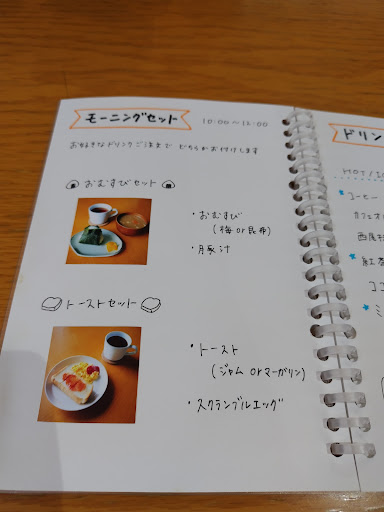 モーニングセット 10:00〜12:00
お好きなドリンクご注文で どちらかお付けします
おむすびセット
・おむすび
(梅or昆布)
・豚汁
トーストセット
・トースト
(ジャム orマーガリン)
・スクランブルエッグ
ドリン
HOT/IC
コーヒー
カフェオ
西尾
紅茶
ココ
ミ